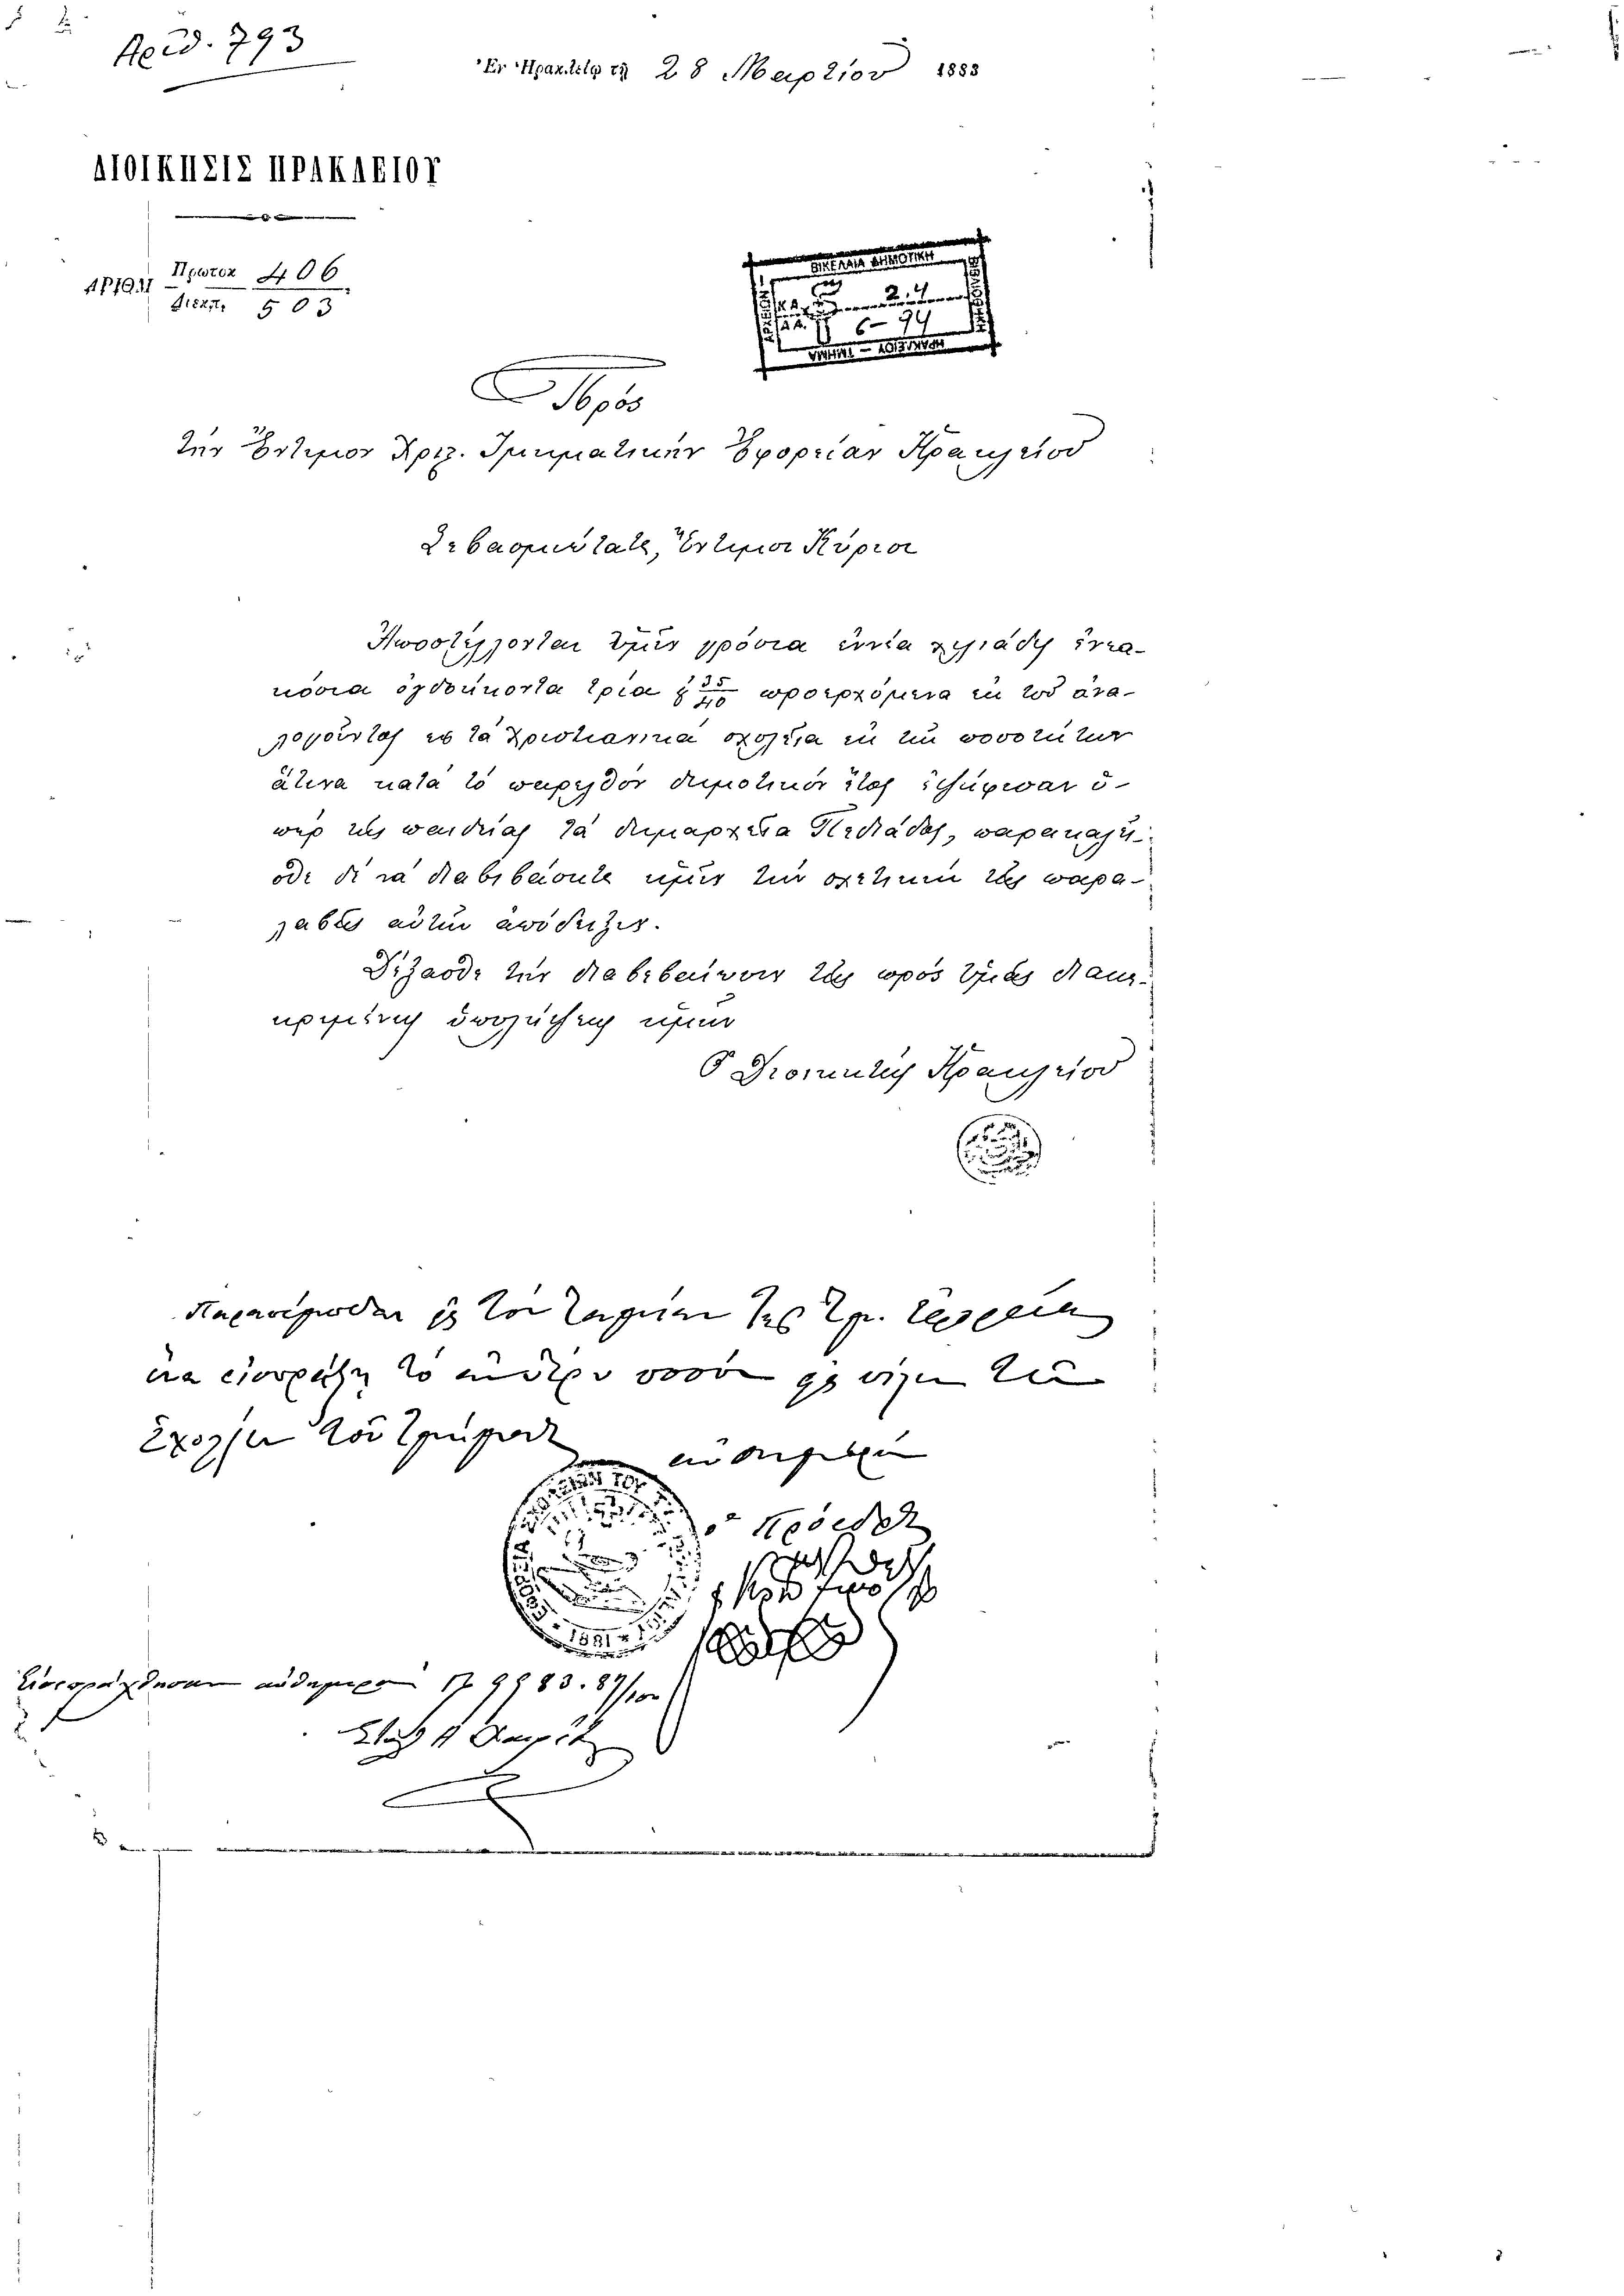 Αριθ. 793
Ἐν Ἡρακλείῳ τῇ 28 Μαρτίου 1883
ΔΙΟΙΚΗΣΙΣ ΗΡΑΚΛΕΙΟΥ
ΑΡΙΘΜ Πρωτοκ 406
Διεκπ. 503
ΒΙΚΕΛΑΙΑ ΔΗΜΟΤΙΚΗ
24
6-94
ΗΡΑΚΛΕΙΟΥ – ΤΜΗΜΑ
Πρός
τὴν Ἔντιμον Χριστ. Τμηματικὴν Ἐφορείαν Ἡρακλείου
Σεβασμιώτατε, Ἔντιμοι Κύριοι
Ἀποστέλλονται ὑμῖν γρόσια ἐννέα χιλιάδες ἐννα-
κόσια ὀγδοήκοντα τρία & 35/40 προερχόμενα ἐκ τοῦ ἀνα-
λογοῦντος εἰς τὰ Χριστιανικὰ σχολεῖα ἐκ τῶν ποσοτήτων
ἅτινα κατὰ τὸ παρελθὸν δημοτικὸν ἔτος ἐψήφισαν ὑ-
πὲρ τῆς παιδείας τὰ δημαρχεῖα Πεδιάδος, παρακαλεῖ-
σθε δὲ νὰ διαβιβάσητε ἡμῖν τὴν σχετικὴν τῆς παρα-
λαβῆς αὐτῶν ἀπόδειξιν.
Δέξασθε τὴν διαβεβαίωσιν τῆς πρὸς ὑμᾶς διακε-
κριμένης ὑπολήψεως ἡμῶν
Ὁ Διοικητὴς Ἡρακλείου
Παραπέμπεται εἰς τὸν ταμίαν τῆς Τμ. Ἐφορείας
ἵνα εἰσπράξῃ τὸ ποσὸν τῶν
Σχολείων τοῦ Τμήματος αὐθημερόν
ὁ Πρόεδρος
1881
Εἰσεπράχθησαν αὐθημερὸν 9983.87/100